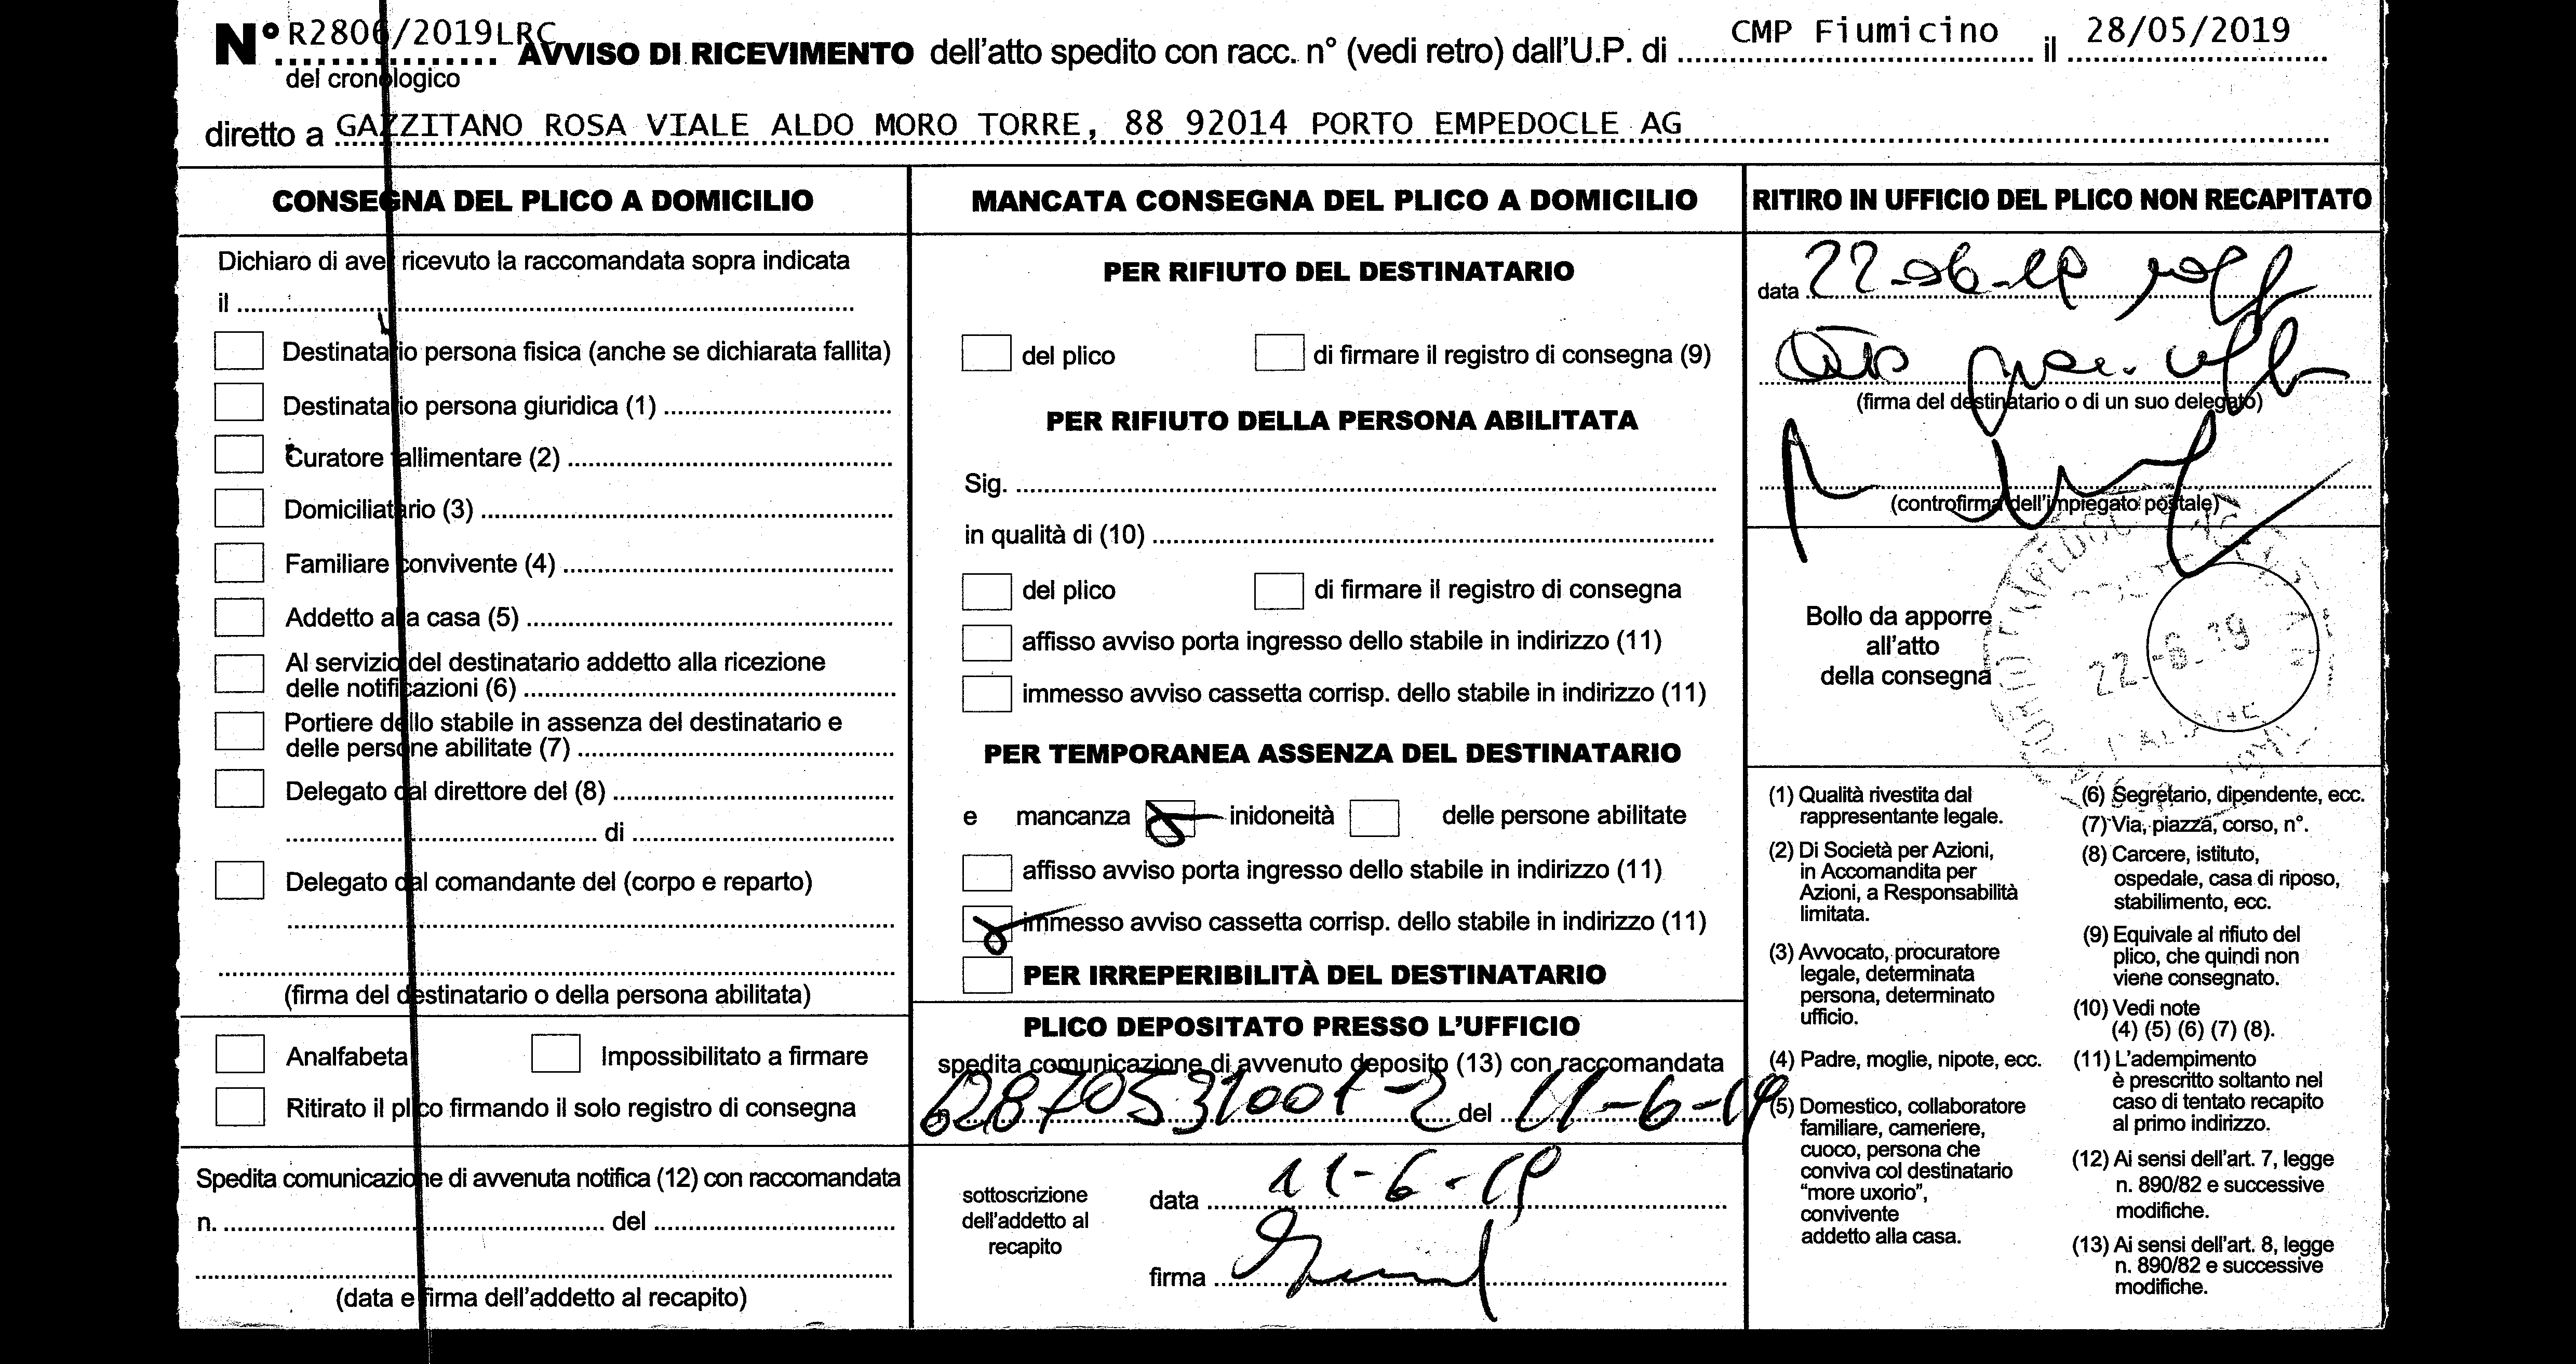 N° R2806/2019LRC AVVISO DI RICEVIMENTO dell'atto spedito con racc. n° (vedi retro) dall'U.P. di CMP Fiumicino il 28/05/2019
del cronologico
diretto a GAZZITANO ROSA VIALE ALDO MORO TORRE, 88 92014 PORTO EMPEDOCLE AG
CONSEGNA DEL PLICO A DOMICILIO
Dichiaro di aver ricevuto la raccomandata sopra indicata
il
Destinatario persona fisica (anche se dichiarata fallita)
Destinatario persona giuridica (1)
Curatore fallimentare (2)
Domiciliatario (3)
Familiare convivente (4)
Addetto alla casa (5)
Al servizio del destinatario addetto alla ricezione
delle notificazioni (6)
Portiere dello stabile in assenza del destinatario e
delle persone abilitate (7)
Delegato dal direttore del (8)
di
Delegato dal comandante del (corpo e reparto)
(firma del destinatario o della persona abilitata)
Analfabeta Impossibilitato a firmare
Ritirato il plico firmando il solo registro di consegna
Spedita comunicazione di avvenuta notifica (12) con raccomandata
n. del
(data e firma dell'addetto al recapito)
MANCATA CONSEGNA DEL PLICO A DOMICILIO
PER RIFIUTO DEL DESTINATARIO
del plico di firmare il registro di consegna (9)
PER RIFIUTO DELLA PERSONA ABILITATA
Sig.
in qualità di (10)
del plico di firmare il registro di consegna
affisso avviso porta ingresso dello stabile in indirizzo (11)
immesso avviso cassetta corrisp. dello stabile in indirizzo (11)
PER TEMPORANEA ASSENZA DEL DESTINATARIO
e mancanza inidoneità delle persone abilitate
affisso avviso porta ingresso dello stabile in indirizzo (11)
immesso avviso cassetta corrisp. dello stabile in indirizzo (11)
PER IRREPERIBILITÀ DEL DESTINATARIO
PLICO DEPOSITATO PRESSO L'UFFICIO
spedita comunicazione di avvenuto deposito (13) con raccomandata
62870531001-2 del 11-6-19
sottoscrizione
dell'addetto al
recapito
data 11-6-19
firma
RITIRO IN UFFICIO DEL PLICO NON RECAPITATO
data 22-06-19
(firma del destinatario o di un suo delegato)
(controfirma dell'impiegato postale)
Bollo da apporre
all'atto
della consegna
22-6-19
(1) Qualità rivestita dal
rappresentante legale.
(2) Di Società per Azioni,
in Accomandita per
Azioni, a Responsabilità
limitata.
(3) Avvocato, procuratore
legale, determinata
persona, determinato
ufficio.
(4) Padre, moglie, nipote, ecc.
(5) Domestico, collaboratore
familiare, cameriere,
cuoco, persona che
conviva col destinatario
"more uxorio",
convivente
addetto alla casa.
(6) Segretario, dipendente, ecc.
(7) Via, piazza, corso, n°.
(8) Carcere, istituto,
ospedale, casa di riposo,
stabilimento, ecc.
(9) Equivale al rifiuto del
plico, che quindi non
viene consegnato.
(10) Vedi note
(4) (5) (6) (7) (8).
(11) L'adempimento
è prescritto soltanto nel
caso di tentato recapito
al primo indirizzo.
(12) Ai sensi dell'art. 7, legge
n. 890/82 e successive
modifiche.
(13) Ai sensi dell'art. 8, legge
n. 890/82 e successive
modifiche.